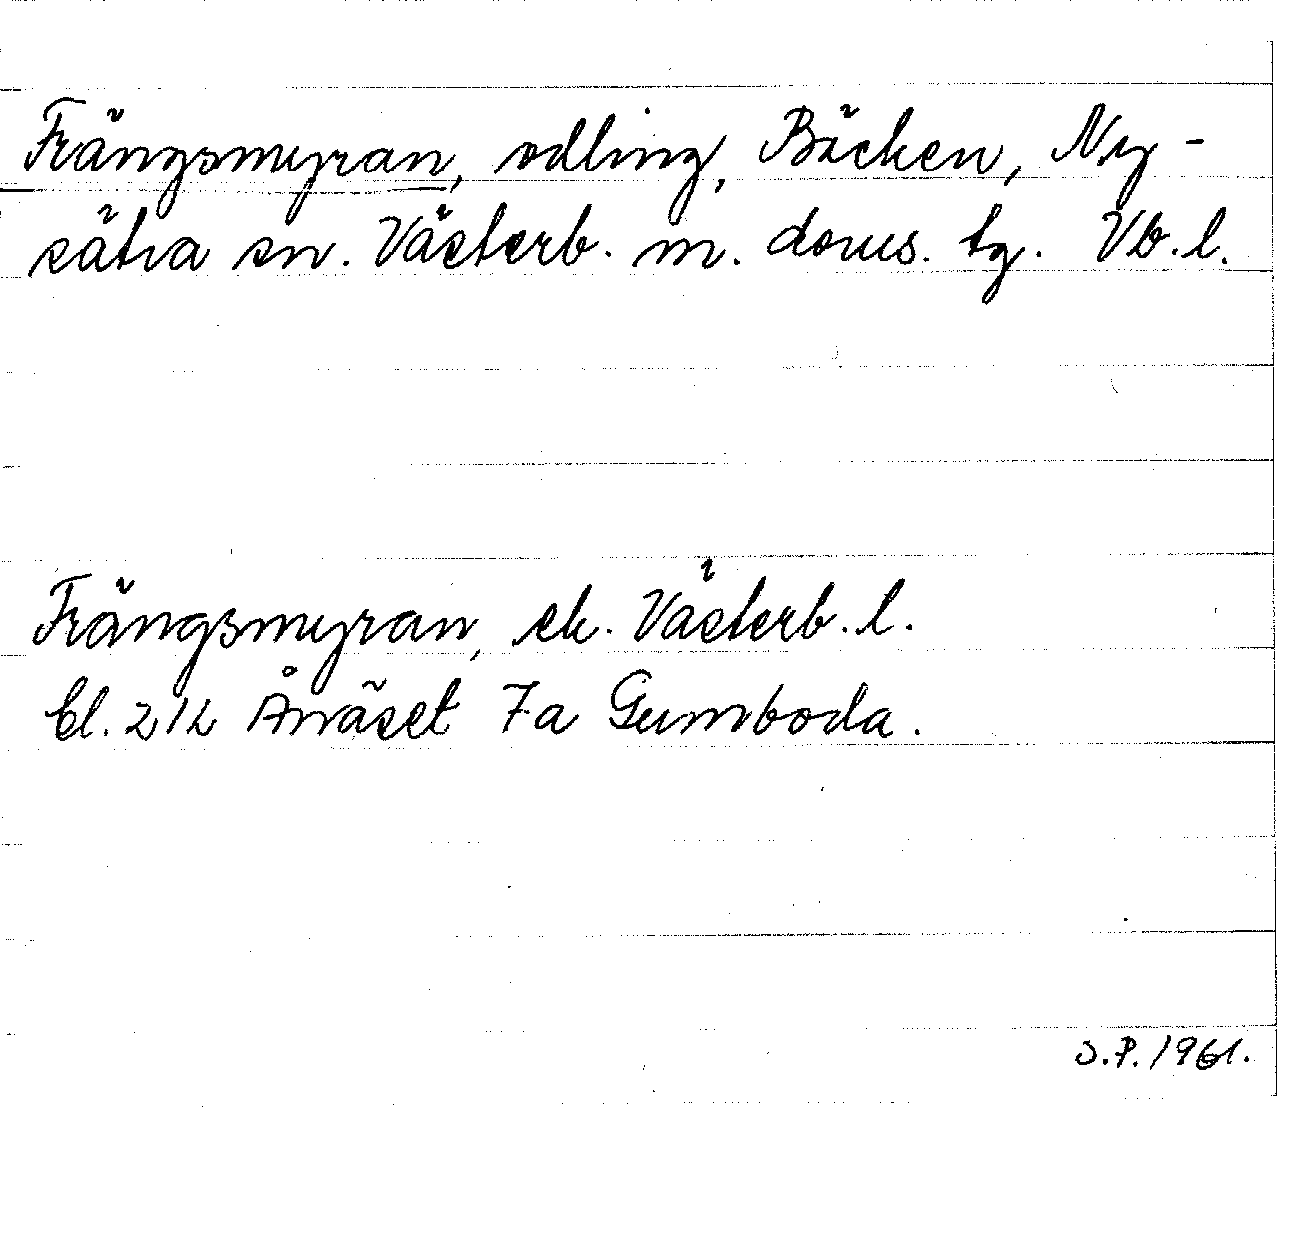 Frängsmyran, odling, Bäcken, Ny-
sätra sn. Västerb. m. doms. tg. Vb. l.
Frängsmyran, ek. Västerb. l.
bl. 212 Ånäset 7a Gumboda.
S.P. 1961.